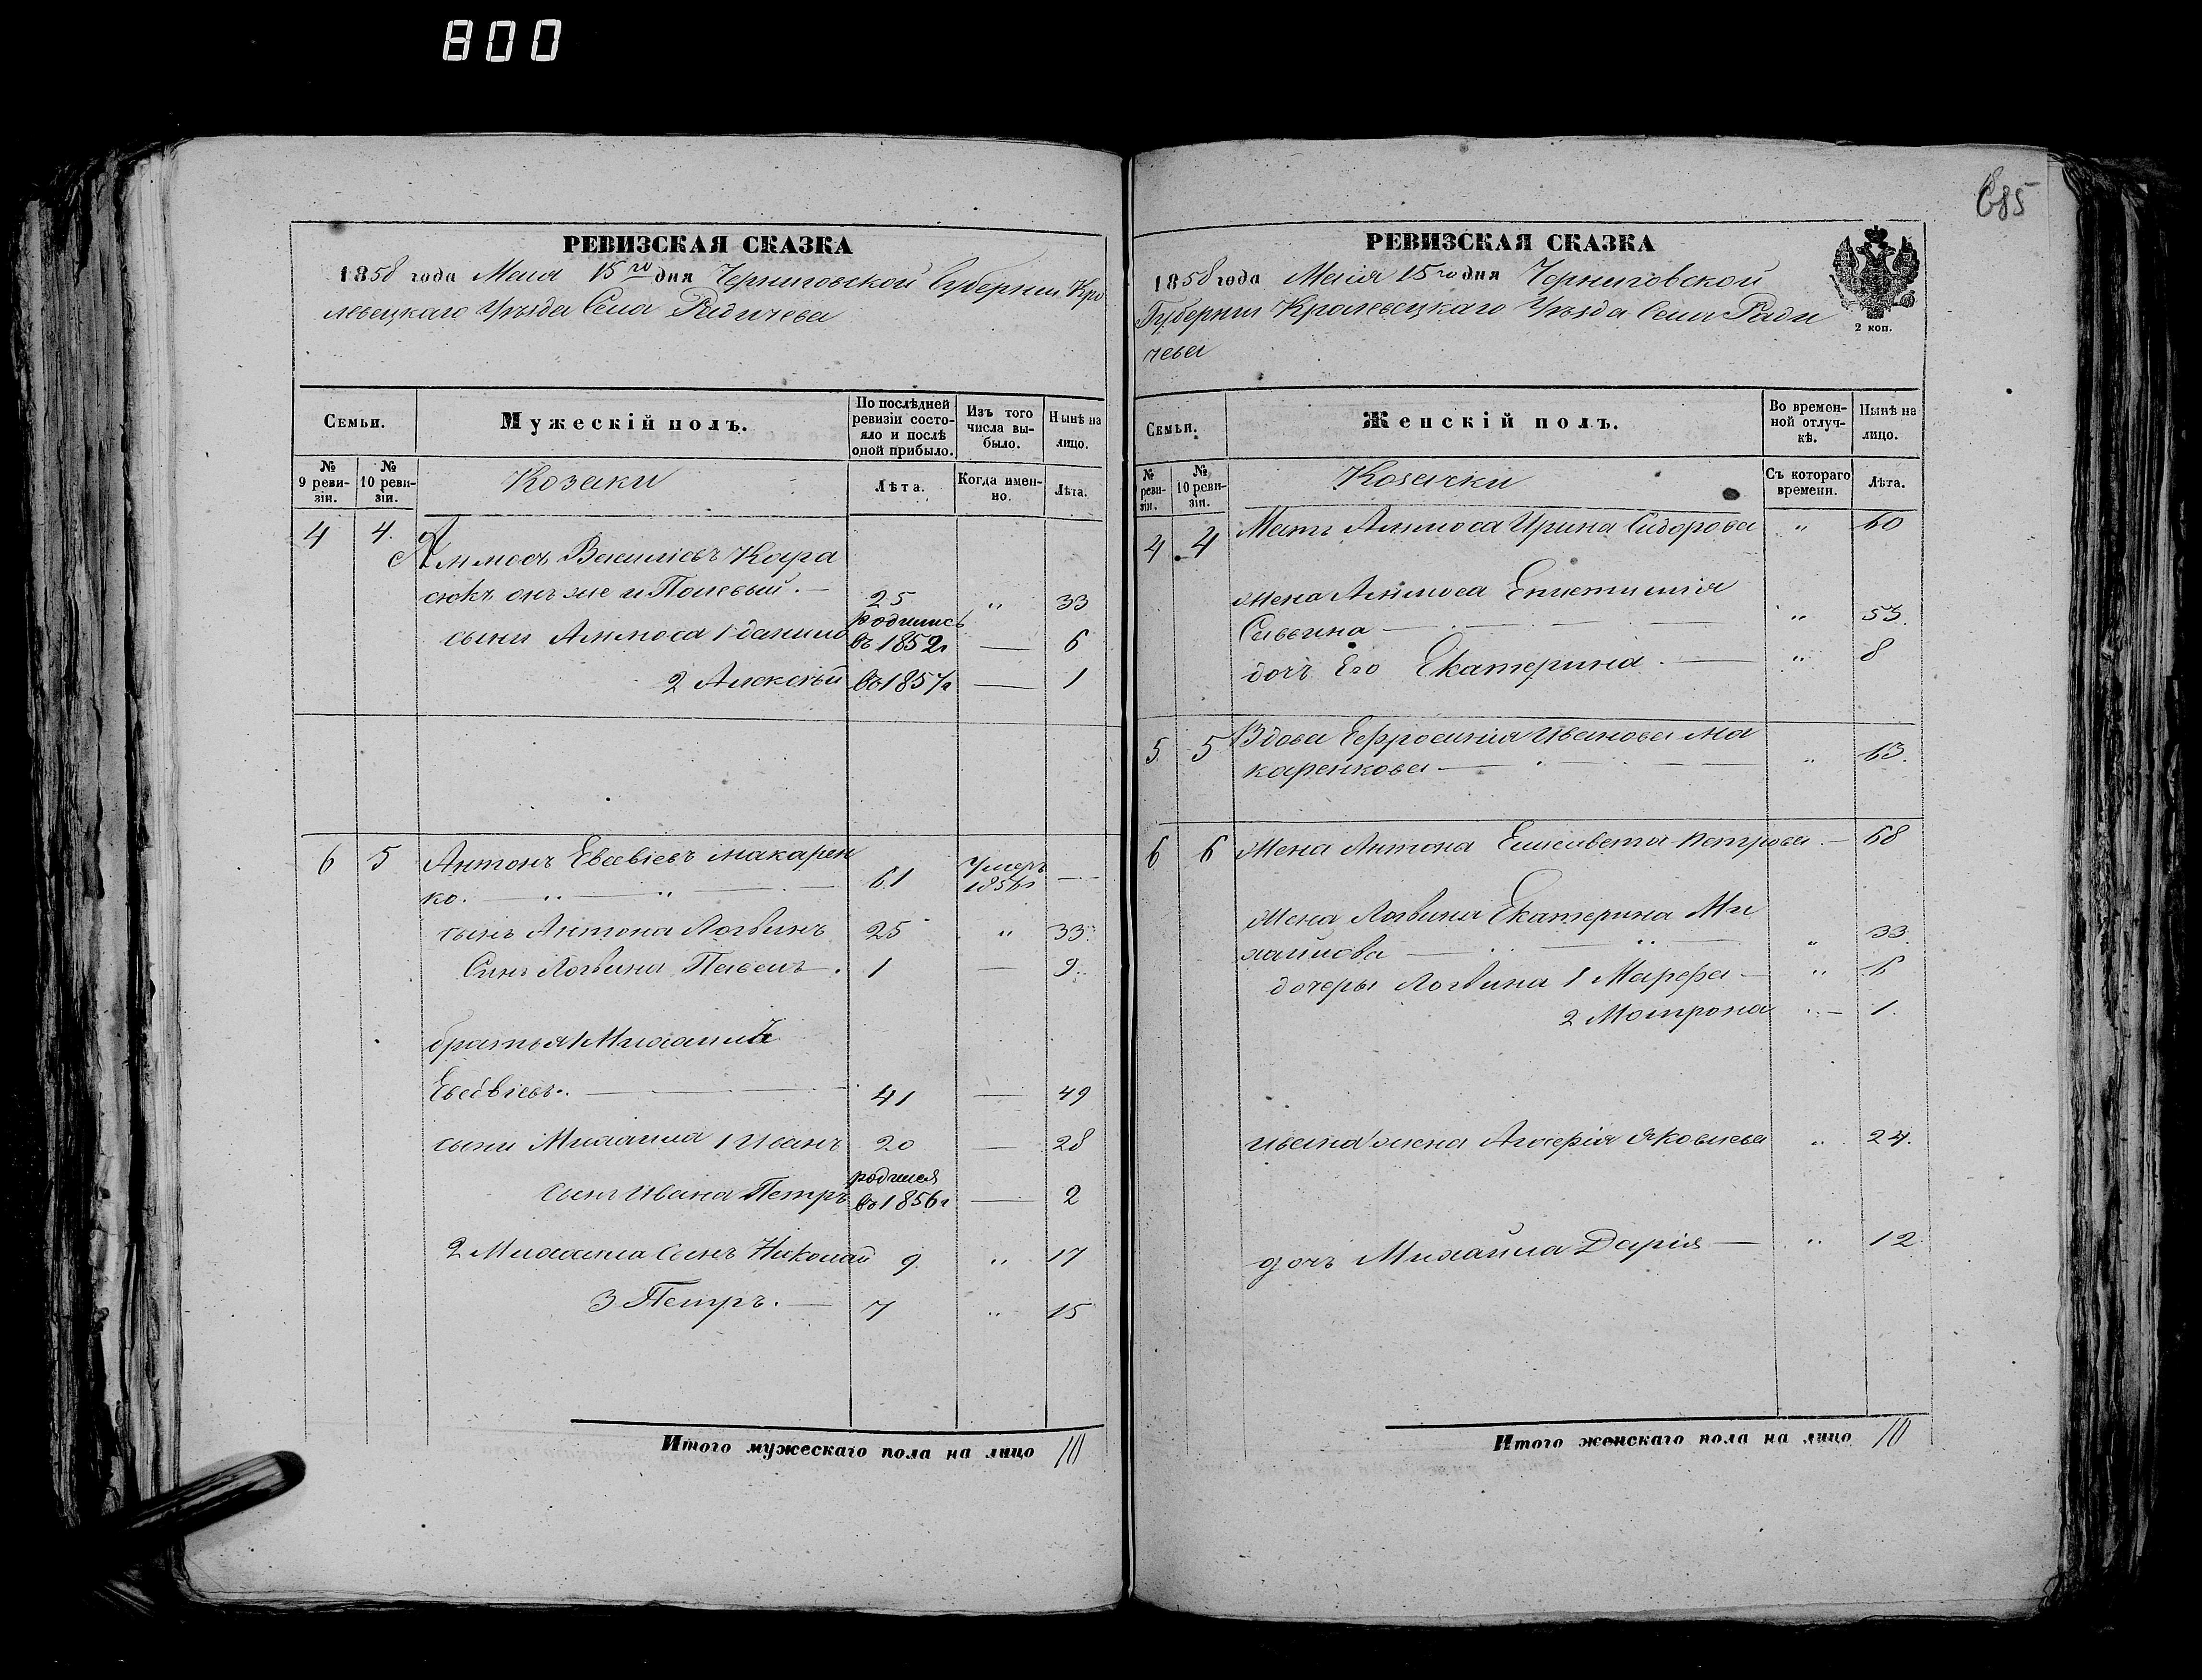 800
685
РЕВИЗСКАЯ СКАЗКА
1858 года Маія 15го дня Черниговской Губерніи Кро
левецкаго Уѣзда Села Радичева
Семьи.
Мужескій полъ.
По послѣдней ревизіи состояло и послѣ оной прибыло.
Изъ того числа выбыло.
Нынѣ на лицо.
№ 9 ревизіи.
№ 10 ревизіи.
Козаки
Лѣта.
Когда именно.
Лѣта.
4 4. Аммосъ Василіевъ Кара
сюкъ онъ же и Полевый. — 25 „ 33
сыны Аммоса 1 данило родились въ 1852г — 6
2 Алексѣй въ 1857г — 1
6 5 Антонъ Евсѣвіевъ макарен
ко. — „ — 61 Умеръ 1856г —
сынъ Антона Логвинъ 25 „ 33.
Синъ Логвина Павелъ — . 1 — 9.
братья 1 Михаилъ
Евсѣвіевъ. — 41 — 49
сыни Михаила 1 Иванъ 20 — 28
Сынъ Ивана Петръ родился въ 1856г — 2
2 Михаила Сынъ Николай 9 „ 17
3 Петръ. — 7 „ 15
Итого мужескаго пола на лицо 10
РЕВИЗСКАЯ СКАЗКА
1858 года Маія 15го дня Черниговской
Губерніи Кролевецкаго Уѣзда Села Ради
чева
2 коп.
Семьи.
Женскій полъ.
Во временной отлучкѣ.
Нынѣ на лицо.
№ реви-зіи.
№ 10 ревизіи.
Козачки
Съ котораго времени.
Лѣта.
4 4 Мать Аммоса Ирина Сидорова „ 60
Жена Аммоса Епистимія
Савина — „ 33.
дочь Его Екатерина. — „ 8
5 5 Вдова Ефросинія Иванова ма
каренкова — „ 63.
6 6 Жена Антона Елисавета Петрова. — 68
Жена Логвина Екатерина Ми
хайлова — „ 33.
дочеры Логвина 1 Марфа — „ 6
2 Мотрона „ — 1.
ивана жена Агафія Яковлева „ 24.
дочь Михайла Дарія — „ 12
Итого женскаго пола на лицо 10